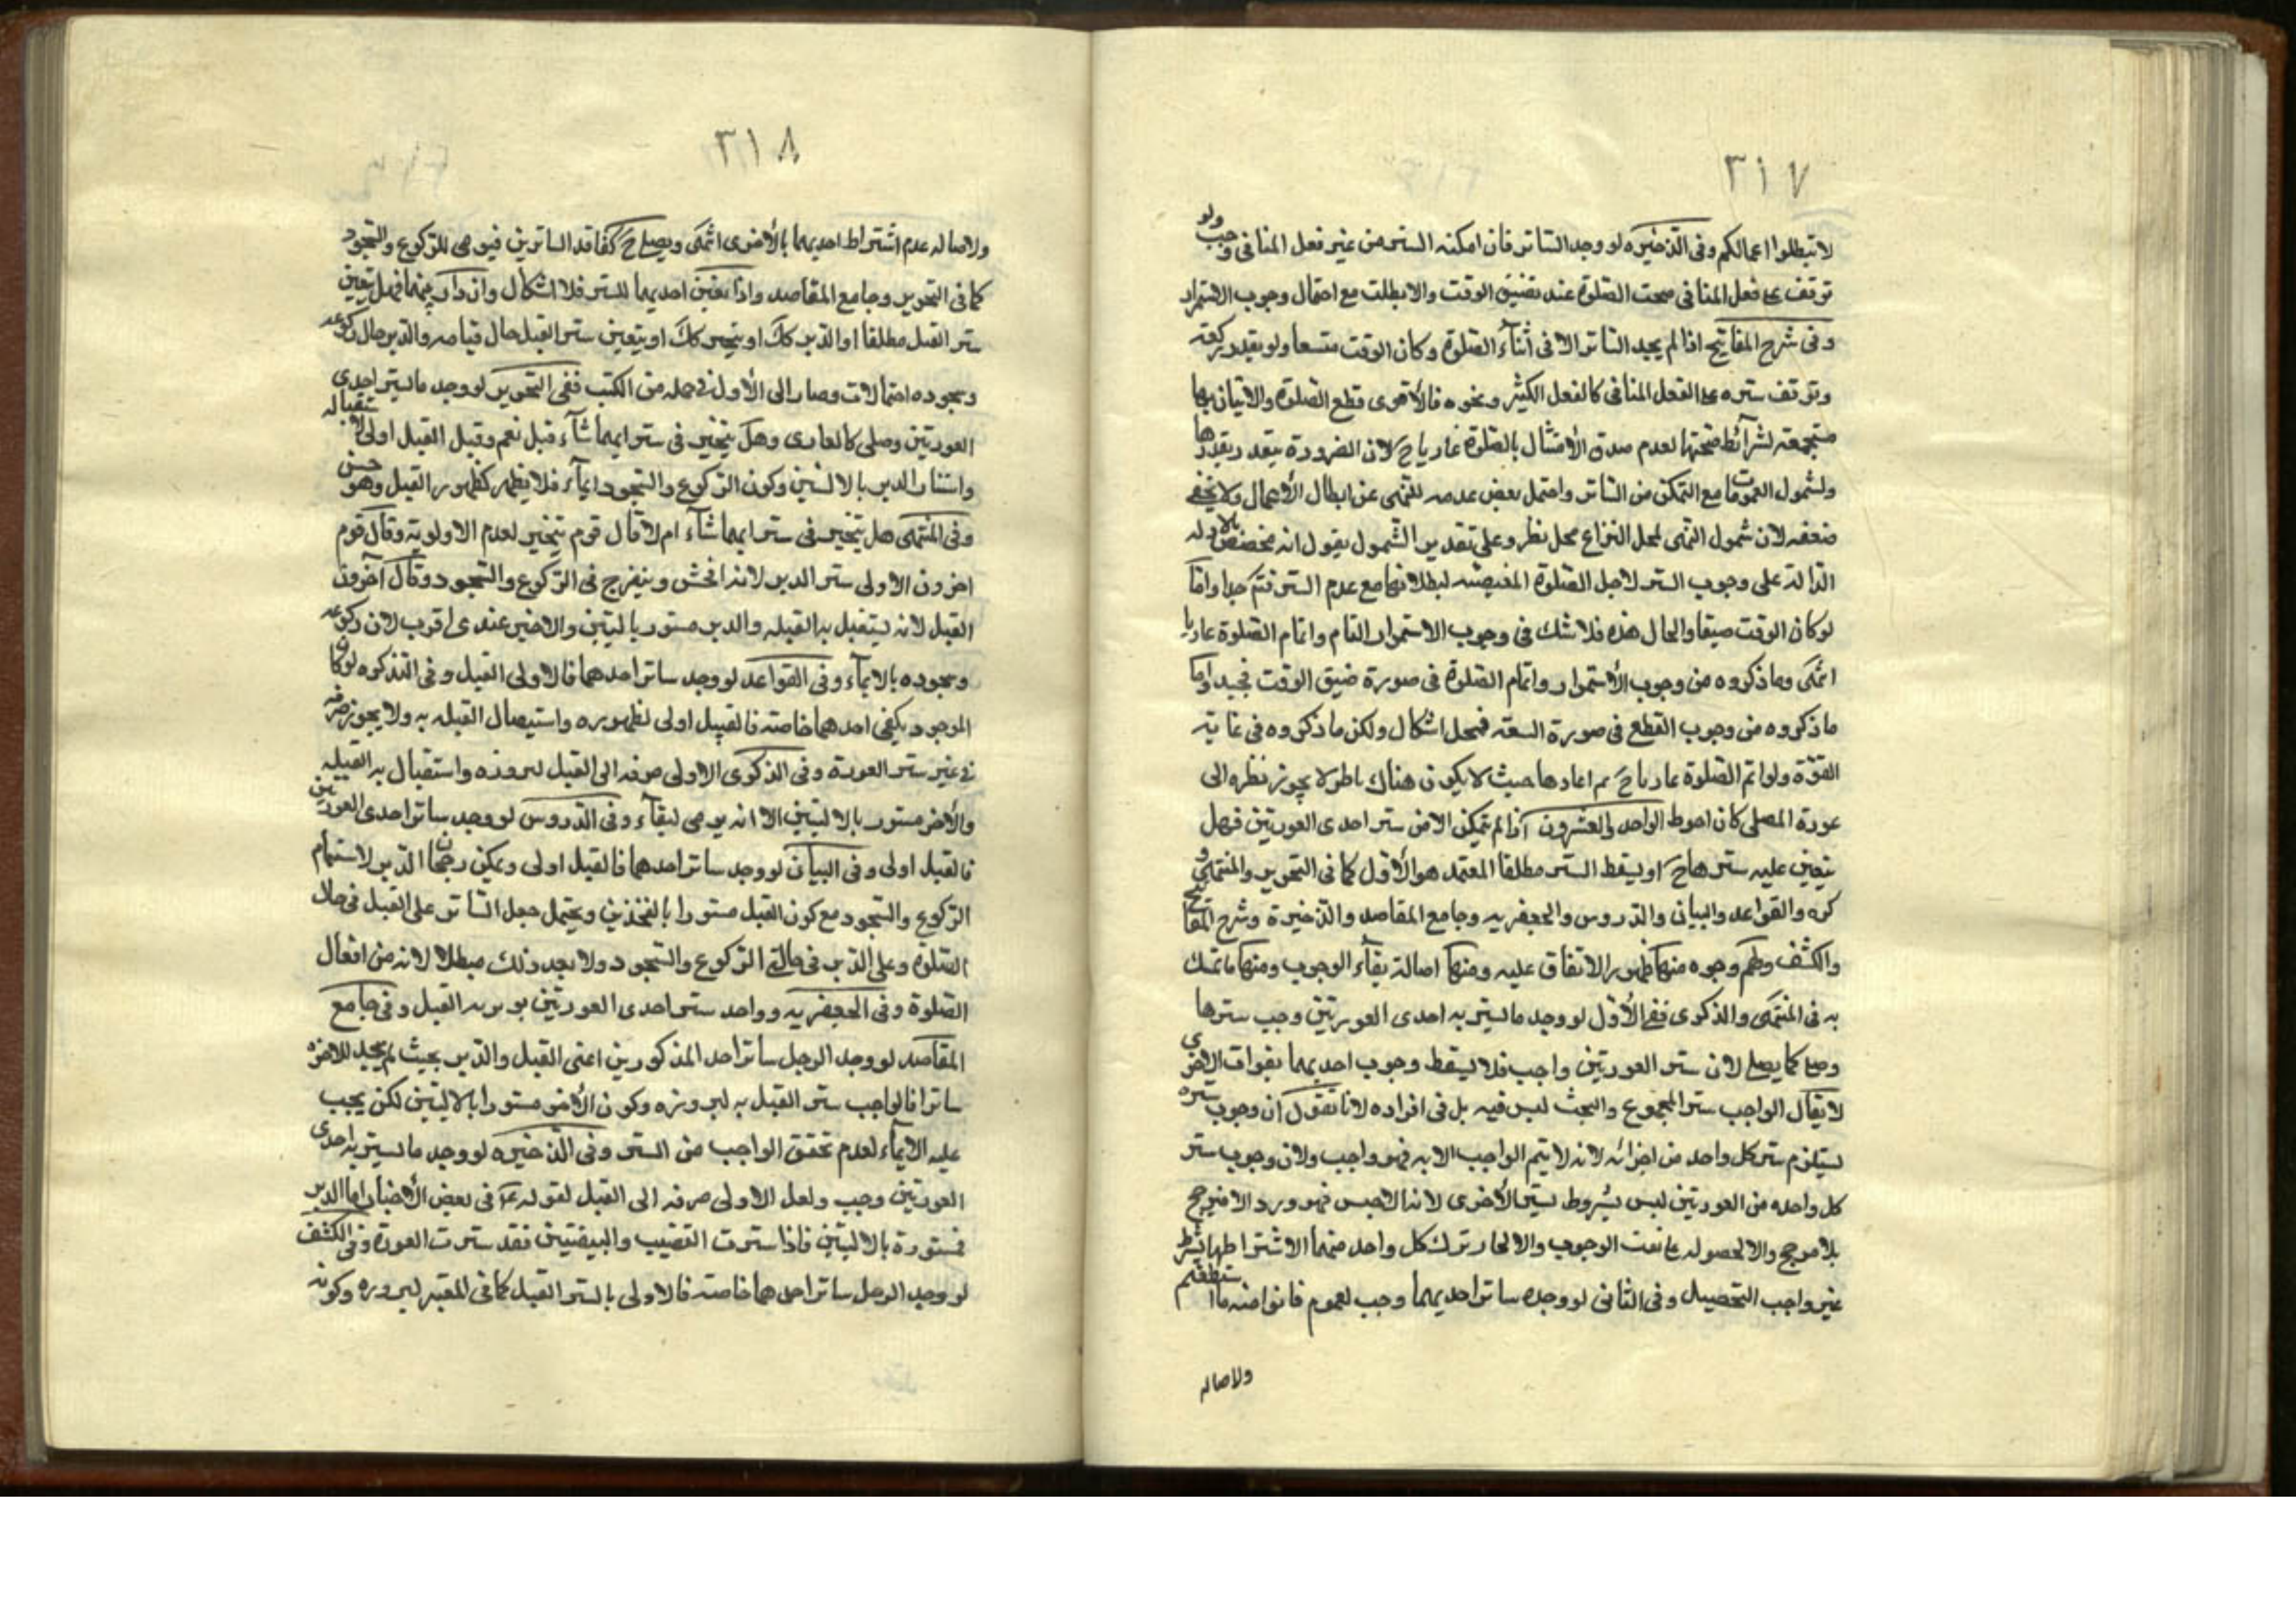 ٣١٧
لا تبطلوا اعمالكم وفى الذخيره لو وجد الساتر فان امكنه الستر من غير فعل المنافى وجب ولو
توقف على فعل المنافى صحت الصلوة عند تضيق الوقت والا بطلت مع احتمال وجوب الاستمرار
وفى شرح المفاتيح اذا لم يجد الساتر الا فى أثناء الصلوة وكان الوقت متسعا ولو بقدر ركعة
وتوقف ستره على الفعل المنافى كالفعل الكثير ونحوه فالأقوى قطع الصلوة والاتيان بها
مستجمعة لشرائط صحتها لعدم صدق الأمتثال بالصلوة عاريا ح لان الضرورة يتقدر بقدرها
ولشمول العمومات مع التمكن من الساتر واحتمل بعض عدمه للنهى عن ابطال الأعمال ولا يخفى
ضعفه لان شمول النهى لمحل النزاع محل نظر وعلى تقدير الشمول يقول انه مخصص بالادلة
الدالة على وجوب الستر لاجل الصلوة المقتضية لبطلانها مع عدم الستر فتم جدا وامّا
لو كان الوقت ضيقا والحال هذه فلا شك فى وجوب الاستمرار التام واتمام الصلوة عاريا
انتهى وما ذكروه من وجوب الأستمرار واتمام الصلوة فى صورة ضيق الوقت فجيد وامّا
ما ذكروه من وجوب القطع فى صورة السعة فمحل اشكال ولكن ما ذكروه فى غاية
القوّة ولو اتم الصلوة عاريا ح ثم اعادها حيث لا يكون هناك ناظر لا يجوز نظره الى
عورة المصلى كان احوط الواحد والعشرون اذا لم يتمكن الا من ستر احدى العورتين فهل
يتعين عليه سترها ح او يسقط الستر مطلقا المعتمد هو الأول كما فى التحرير والمنتهى و
كره والقواعد والبيان والدروس والجعفريه وجامع المقاصد والذخيرة وشرح المفاتيح
والكشف ولهم وجوه منها ظهور الاتفاق عليه ومنها اصالة بقاء الوجوب ومنها ما تمسك
به فى المنتهى والذكرى ففى الأوّل لو وجد ما يستر به احدى العورتين وجب سترها
وصلى كما يصلى لان ستر العورتين واجب فلا يسقط وجوب احديهما بفوات الاخرى
لا يقال الواجب ستر المجموع والبحث ليس فيه بل فى افراده لانا نقول ان وجوب ستره
يستلزم ستر كل واحد من اجزائه لانه لا يتم الواجب الا به فهو واجب ولان وجوب ستر
كل واحده من العورتين ليس بشروط بستر الأخرى
غير واجب التحصيل وفى الثانى لو وجد ساتر احديهما وجب لعموم فاتوا منه ما استطعتم
ولاصالة
٣١٨
ولاصالة عدم اشتراط احديهما بالأخرى انتهى ويصلى ح كفاقد الساترين فيومى للركوع والسجود
كما فى التحرير وجامع المقاصد واذا تعين احديهما للستر فلا اشكال وان دار بينهما فهل يتعين
ستر القبل مطلقا او الدبر كك او يتخير كك او يتعين ستر القبل حال قيامه والدبر حال ركوعه
وسجوده احتمالات وصار الى الأول فى جملة من الكتب ففى التحرير لو وجد ما يستر احدى
العورتين وصلى كالعارى وهل يتخير فى ستر ايهما شاء قبل نعم وقيل القبل اولى لاستقباله
واستتار الدبر بالاليتين وكون الركوع والسجود ايماء فلا يظهر كظهور القبل وهو حسن
وفى المنتهى هل يتخير فى ستر ايهما شاء ام لا قال قوم يتخير لعدم الاولوية وقال قوم
اخرون الاولى ستر الدبر لانه افحش وينفرج فى الركوع والسجود وقال آخرون
القبل لانه يستقبل به القبله والدبر مستور باليتين والاخير عندى اقرب لان ركوعه
وسجوده بالايماء وفى القواعد لو وجد ساتر احدهما فالاولى القبل وفى التذكره لو كان
الموجود يكفى احدهما خاصة فالقبل اولى لظهوره واستيصال القبله به ولا يجوز صرفه
فى غير ستر العورة وفى الذكرى الاولى صرفه الى القبل لبروزه واستقبال به القبله
والأخر مستور بالاليتين الا انه يومى لبقاء وفى الدروس لو وجد ساتر احدى العورتين
فالقبل اولى وفى البيان لو وجد ساتر احدهما فالقبل اولى ويمكن رجحان الدبر لاستتمام
الركوع والسجود مع كون القبل مستورا بالفخذين ويحتمل جعل الساتر على القبل فى حال
الصلوة وعلى الدبر فى حالتى الركوع والسجود ولا يعد ذلك مبطلا لانه من افعال
الصلوة وفى الجعفريه وواجد ستر احدى العورتين يوثر به القبل وفى جامع
المقاصد لو وجد الرجل ساتر احد المذكورين اعنى القبل والدبر بحيث لم يجد للاخره
ساترا فالواجب ستر القبل به لبروزه وكون الأخر مستورا بالاليتين لكن يجب
عليه الايماء لعدم تحقق الواجب من الستر وفى الذخيره لو وجد ما يستر به احدى
العورتين وجب ولعل الاولى صرفه الى القبل لقوله ع فى بعض الأخبار اما الدبر
فمستورة بالاليتين فاذا سترت القضيب والبيضتين فقد سترت العورة وفى الكشف
لو وجد الرجل ساتر احدهما خاصة فالاولى بالستر القبل كما فى المعتبر لبروزه وكونه